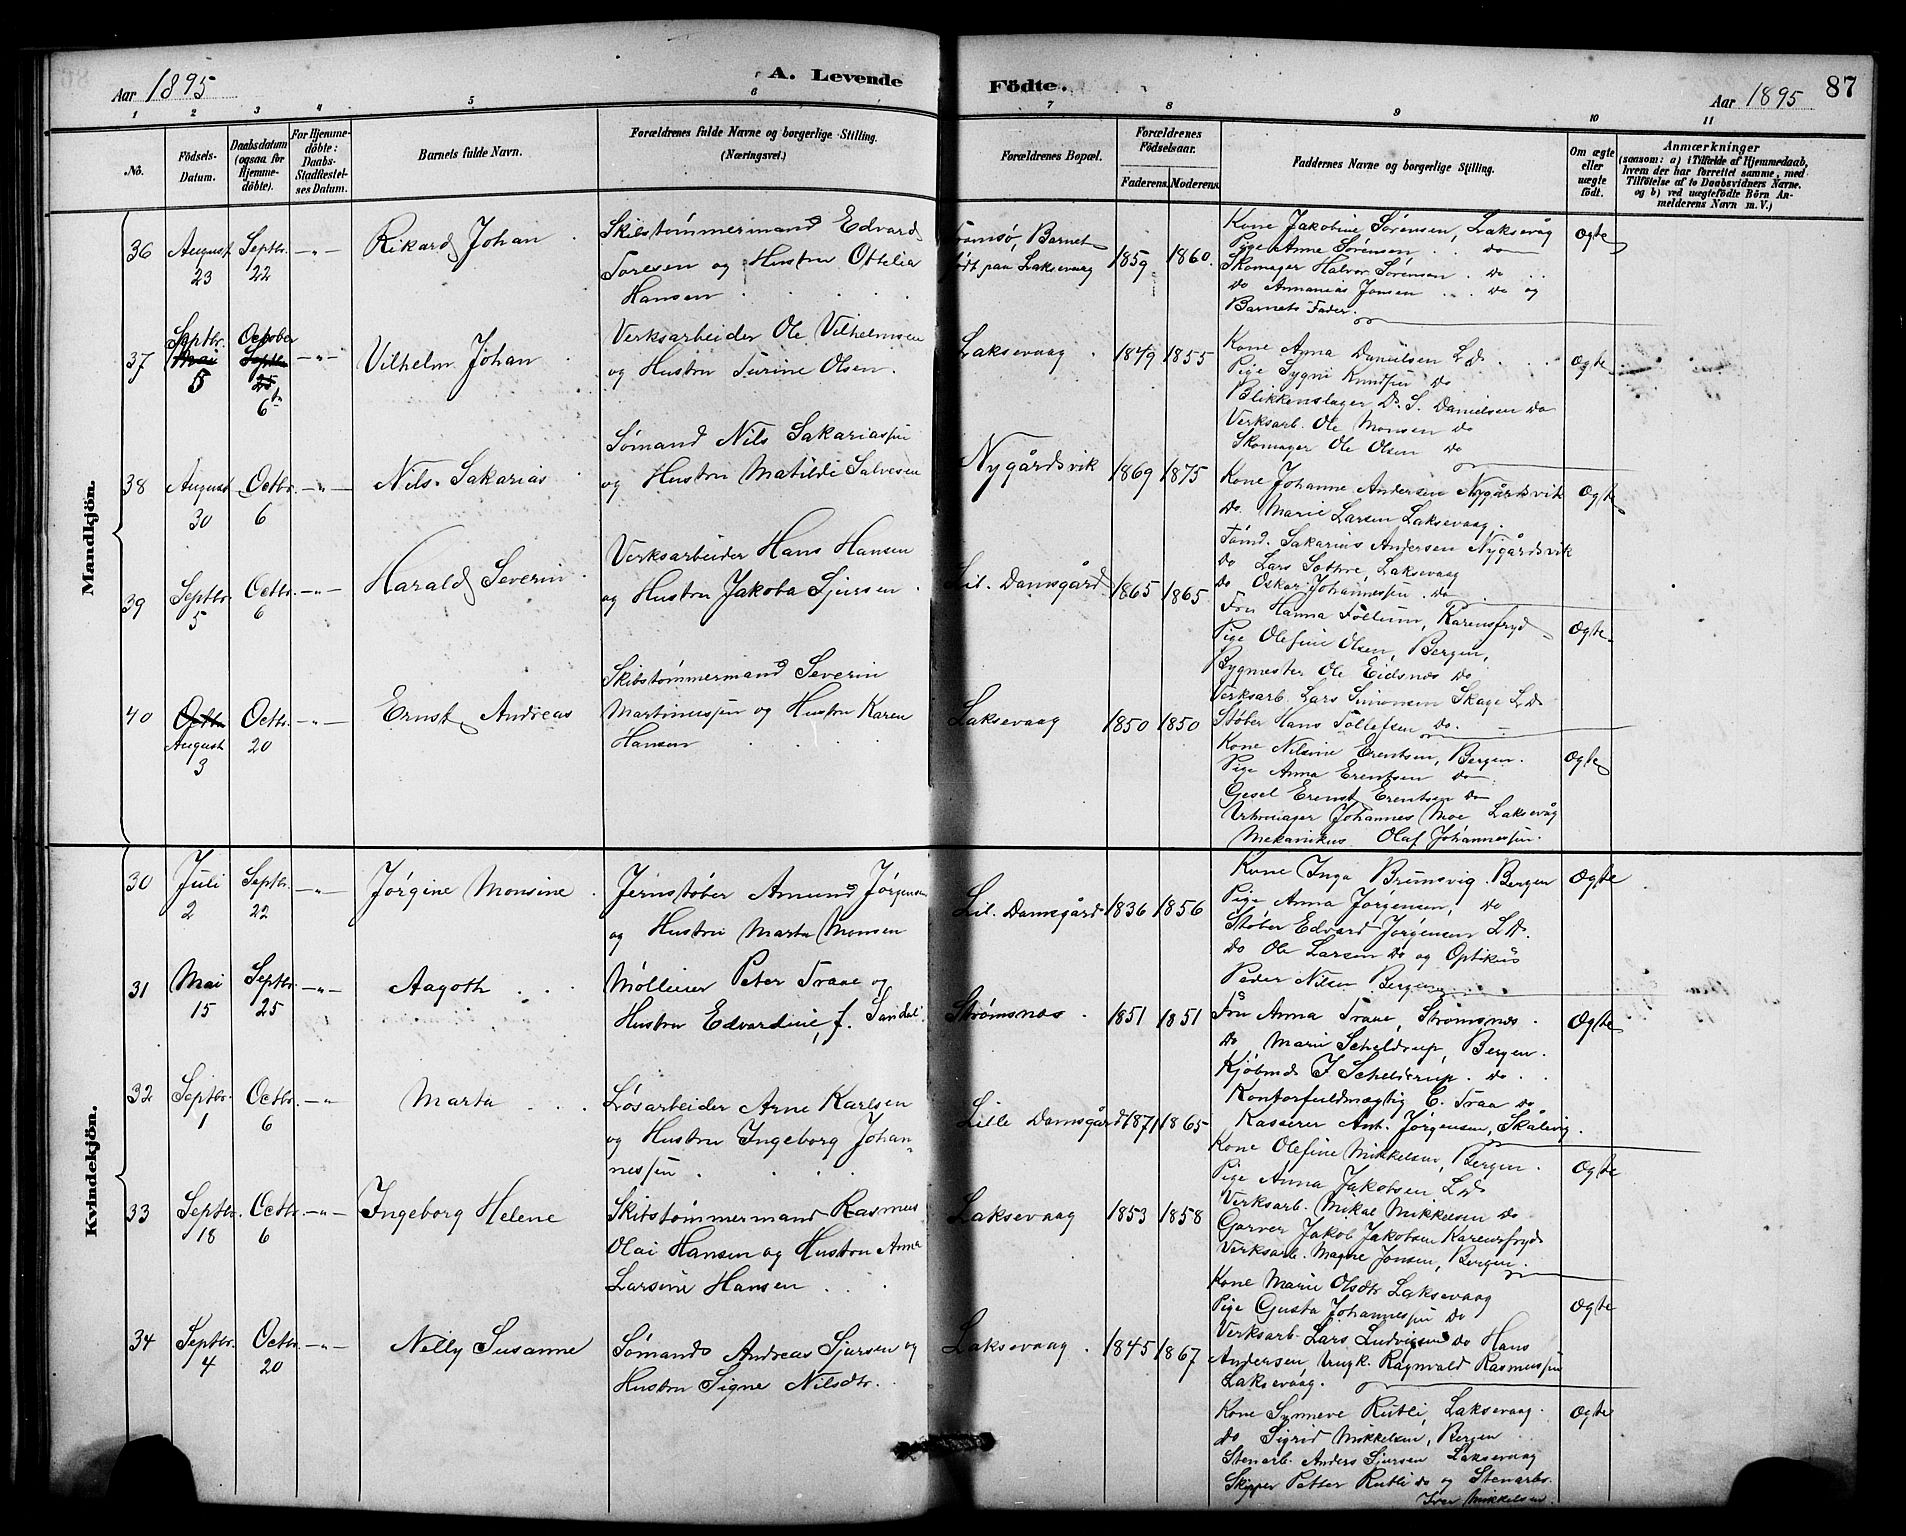 Aar 1895
A. Levende
Födte.
Aar 1895
87
1 2 3 4 5 6 7 8 9 10 11
No.
Födsels-
Datum.
Daabsdatum
(ogsaa for
Hjemme-
döbte).
For Hjemme-
döbte:
Daabs-
Stadfæstel-
ses Datum.
Barnets fulde Navn.
Forældrenes fulde Navne og borgerlige Stilling.
(Næringsvei.)
Forældrenes Bopæl.
Forældrenes
Födselsaar.
Faderens. Moderens.
Faddernes Navne og borgerlige Stilling.
Om ægte
eller
uægte
födt.
Anmærkninger
(saasom: a) i Tilfælde af Hjemmedaab,
hvem der har forrettet samme, med
Tilföielse af to Daabsvidners Navne.
og b) ved uægtefödte Börn An-
melderens Navn m. V.)
Mandkjön.
36 August 23 Septbr. 22 -"- Rikard Johan
Skibstømmermand Edvard
Toresen og Hustru Ottelia
Hansen
Tromsø, Barnet
født paa Laksevaag
1859 1860.
Kone Jakobine Sørensen, Laksevåg
Pige Anne Sørensen do
Skomager Halvor Sørensen do
do Annanias Jonsen do og
Barnets Fader.
Ægte
37 Septbr. Mai 5 October Septbr. 25 6te -"- Vilhelm Johan
Verksarbeider Ole Vilhelmsen
og Hustru Turine Olsen.
Laksevaag 1849 1855
Kone Anna Danielsen L.d.
Pige Sygni Knudsen do
Blikkenslager D. S. Danielsen do
Verksarb. Ole Monsen do
Skomager Ole Olsen do
Ægte
38 August 30 Octbr. 6 -"- Nils Sakarias
Sømand Nils Sakariassen
og Hustru Matilde Salvesen
Nygårdsvik 1869 1875
Kone Johanne Andersen Nygårdsvik
do. Marie Larsen Laksevaag.
Tømd. Sakarias Andersen Nygårdsvik
do Lars Sottre, Laksevaag
do Oskar Johannessen do
Ægte
39 Septbr. 5 Octbr. 6 -"- Harald Severin
Verksarbeider Hans Hansen
og Hustru Jakoba Sjursen
Lil. Damsgård 1865 1865
Fru Hanna Follum, Karensfryd
Pige Olefine Olsen, Bergen,
Bygmester Ole Eidsnæs do
Verksarb. Lars Simonsen Skage L.d.
Støber Hans Tollefsen do.
Ægte
40 Octbr. August 3 Octbr. 20 -"- Ernst Andreas
Skibstømmermand Severin
Martinussen og Hustru Karen
Hansen
Laksevaag 1850 1850
Kone Nilsine Erentsen, Bergen.
Pige Anna Erentsen do
Gesel Erenst Erentsen do
Urtmager Johannes Moe Laksevåg
Mekanikus Olaf Johannessen.
Ægte
Kvindekjön.
30 Juli 2 Septbr. 22 -"- Jørgine Monsine
Jernstøber Amund Jørgensen
og Hustru Marta Monsen
Lil. Damsgård 1836 1856
Kone Inga Brunsvig. Bergen
Pige Anna Jørgensen, do
Støber Edvard Jørgensen L.d.
do Ole Larsen do og Optikus
Peder Nilsen Bergen
Ægte
31 Mai 15 Septbr. 25 -"- Aagoth
Mølleier Peter Traae og
Hustru Edvardine, f. Sandal.
Strømsnæs. 1851 1851
Fru Anna Traae, Strømsnæs.
do Marie Scheldrup, Bergen.
Kjøbmd J. Schelderup. do
Kontorfuldmægtig C. Traa do
Kasserer Ant. Jørgensen, Skålevig.
Ægte
32 Septbr. 1 Octbr. 6 -"- Marta
Løsarbeider Arne Karlsen
og Hustru Ingeborg Johan-
nessen
Lille Damsgård 1871 1865
Kone Olefine Mikkelsen, Bergen.
Pige Anna Jakobsen L.d.
Verksarb. Mikal Mikkelsen do
Garver Jakob Jakobsen Karensfryd
Verksarb. Magne Jonsen, Bergen.
Ægte
33 Septbr. 18 Octbr. 6 -"- Ingeborg Helene
Skibstømmermand Rasmus
Olai Hansen og Hustru Anne
Larsine Hansen
Laksevaag 1853 1858
Kone Marie Olsdtr Laksevaag
Pige Gusta Johannessen do
Verksarb. Lars Ludvigsen do Hans
Andersen, Ungk. Ragnvald Rasmussen
Laksevaag.
Ægte
34 Septbr. 4 Octbr. 20 -"- Nelly Susanne
Sømand Andreas Sjursen og
Hustru Signe Nilsdtr.
Laksevaag 1845 1867
Kone Synneve Rutli, Laksevaag.
do Sigrid Mikkelsen, Bergen
Stenarb. Anders Sjursen Laksevaag
Skipper Petter Rutli do og Stenarb.
Iver Mikkelsen.
Ægte